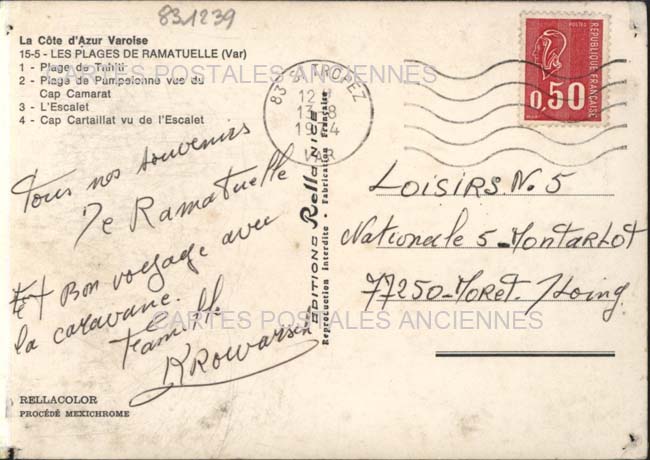 831239
La Côte d'Azur Varoise
15-5 - LES PLAGES DE RAMATUELLE (Var)
1 - Plage de Tahiti
2 - Plage de Pampelonne vue du
Cap Camarat
3 - L'Escalet
4 - Cap Cartaillat vu de l'Escalet
CARTES POSTALES ANCIENNES
83 St TROPEZ
13-8
1974
VAR
POSTES
RÉPUBLIQUE FRANÇAISE
0,50
Tous nos souvenirs
De Ramatuelle
et Bon voyage avec
la caravane.
Famille
EDITIONS Rellanice
Reproduction Interdite - Fabrication Française
LOISIRS. N. 5
Nationale 5-MONTARLOT
77250-MORET./Loing
CARTES POSTALES ANCIENNES
RELLACOLOR
PROCÉDÉ MEXICHROME